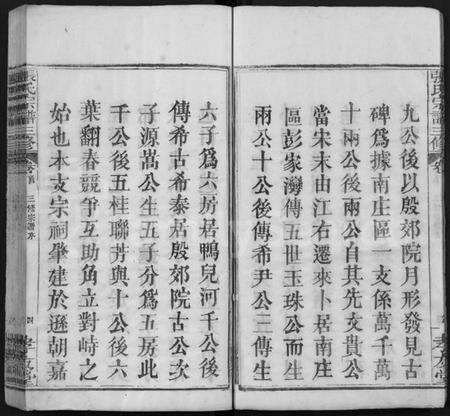 張氏宗譜三修
九公後以殷郊院月形發見古
碑爲據南庄區一支係萬千萬
十兩公後兩公自其先文貴公
當宋末由江右遷來卜居南庄
區彭家灣傳五世玉珠公而生
兩公十公後傳希尹公三傳生
六子爲六房居鴨兒河千公後
傳希古希泰居殷郊院古公次
子源嵩公生五子分爲五房此
千公後五桂聯芳與十公後六
葉翻春競爭互助角立對峙之
始也本支宗祠肇建於遜朝嘉
張氏宗譜三修
三修宗譜序
四